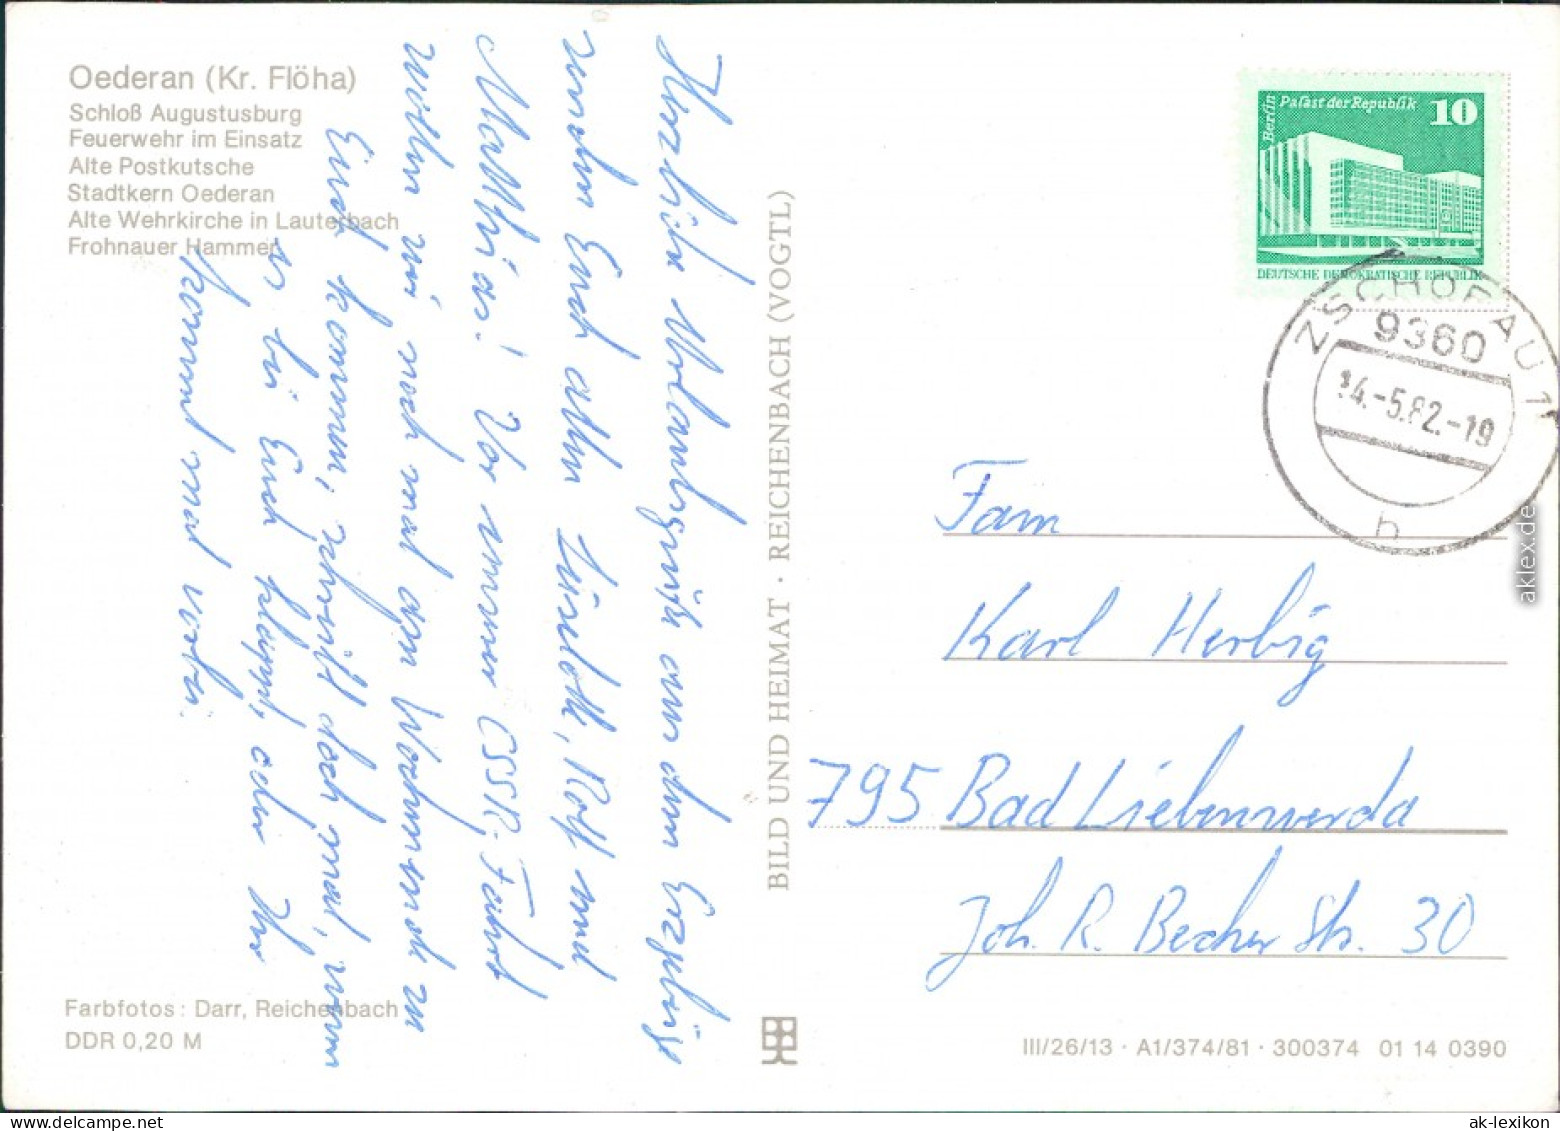 Oederan (Kr. Flöha)
Schloß Augustusburg
Feuerwehr im Einsatz
Alte Postkutsche
Stadtkern Oederan
Alte Wehrkirche in Lauterbach
Frohnauer Hammer
Herzliche Urlaubsgrüße aus dem Erzgebirge
senden Euch allen Liselott, Rolf und
Matthias! Vor unserer CSSR-Fahrt
wollen wir noch mal am Wochenende zu
Euch kommen; schreibt doch mal, wann
es bei Euch klappt, oder Ihr
kommt mal vorbei.
Farbfotos: Darr, Reichenbach
DDR 0,20 M
BILD UND HEIMAT · REICHENBACH (VOGTL)
Berlin Palast der Republik 10
DEUTSCHE DEMOKRATISCHE REPUBLIK
ZSCHOPAU 1
9360
14.-5.82.-19
h
Fam
Karl Herbig
795 Bad Liebenwerda
Joh. R. Becher Str. 30
III/26/13 · A1/374/81 · 300374 01 14 0390
aklex.de
www.delcampe.net
ak-lexikon